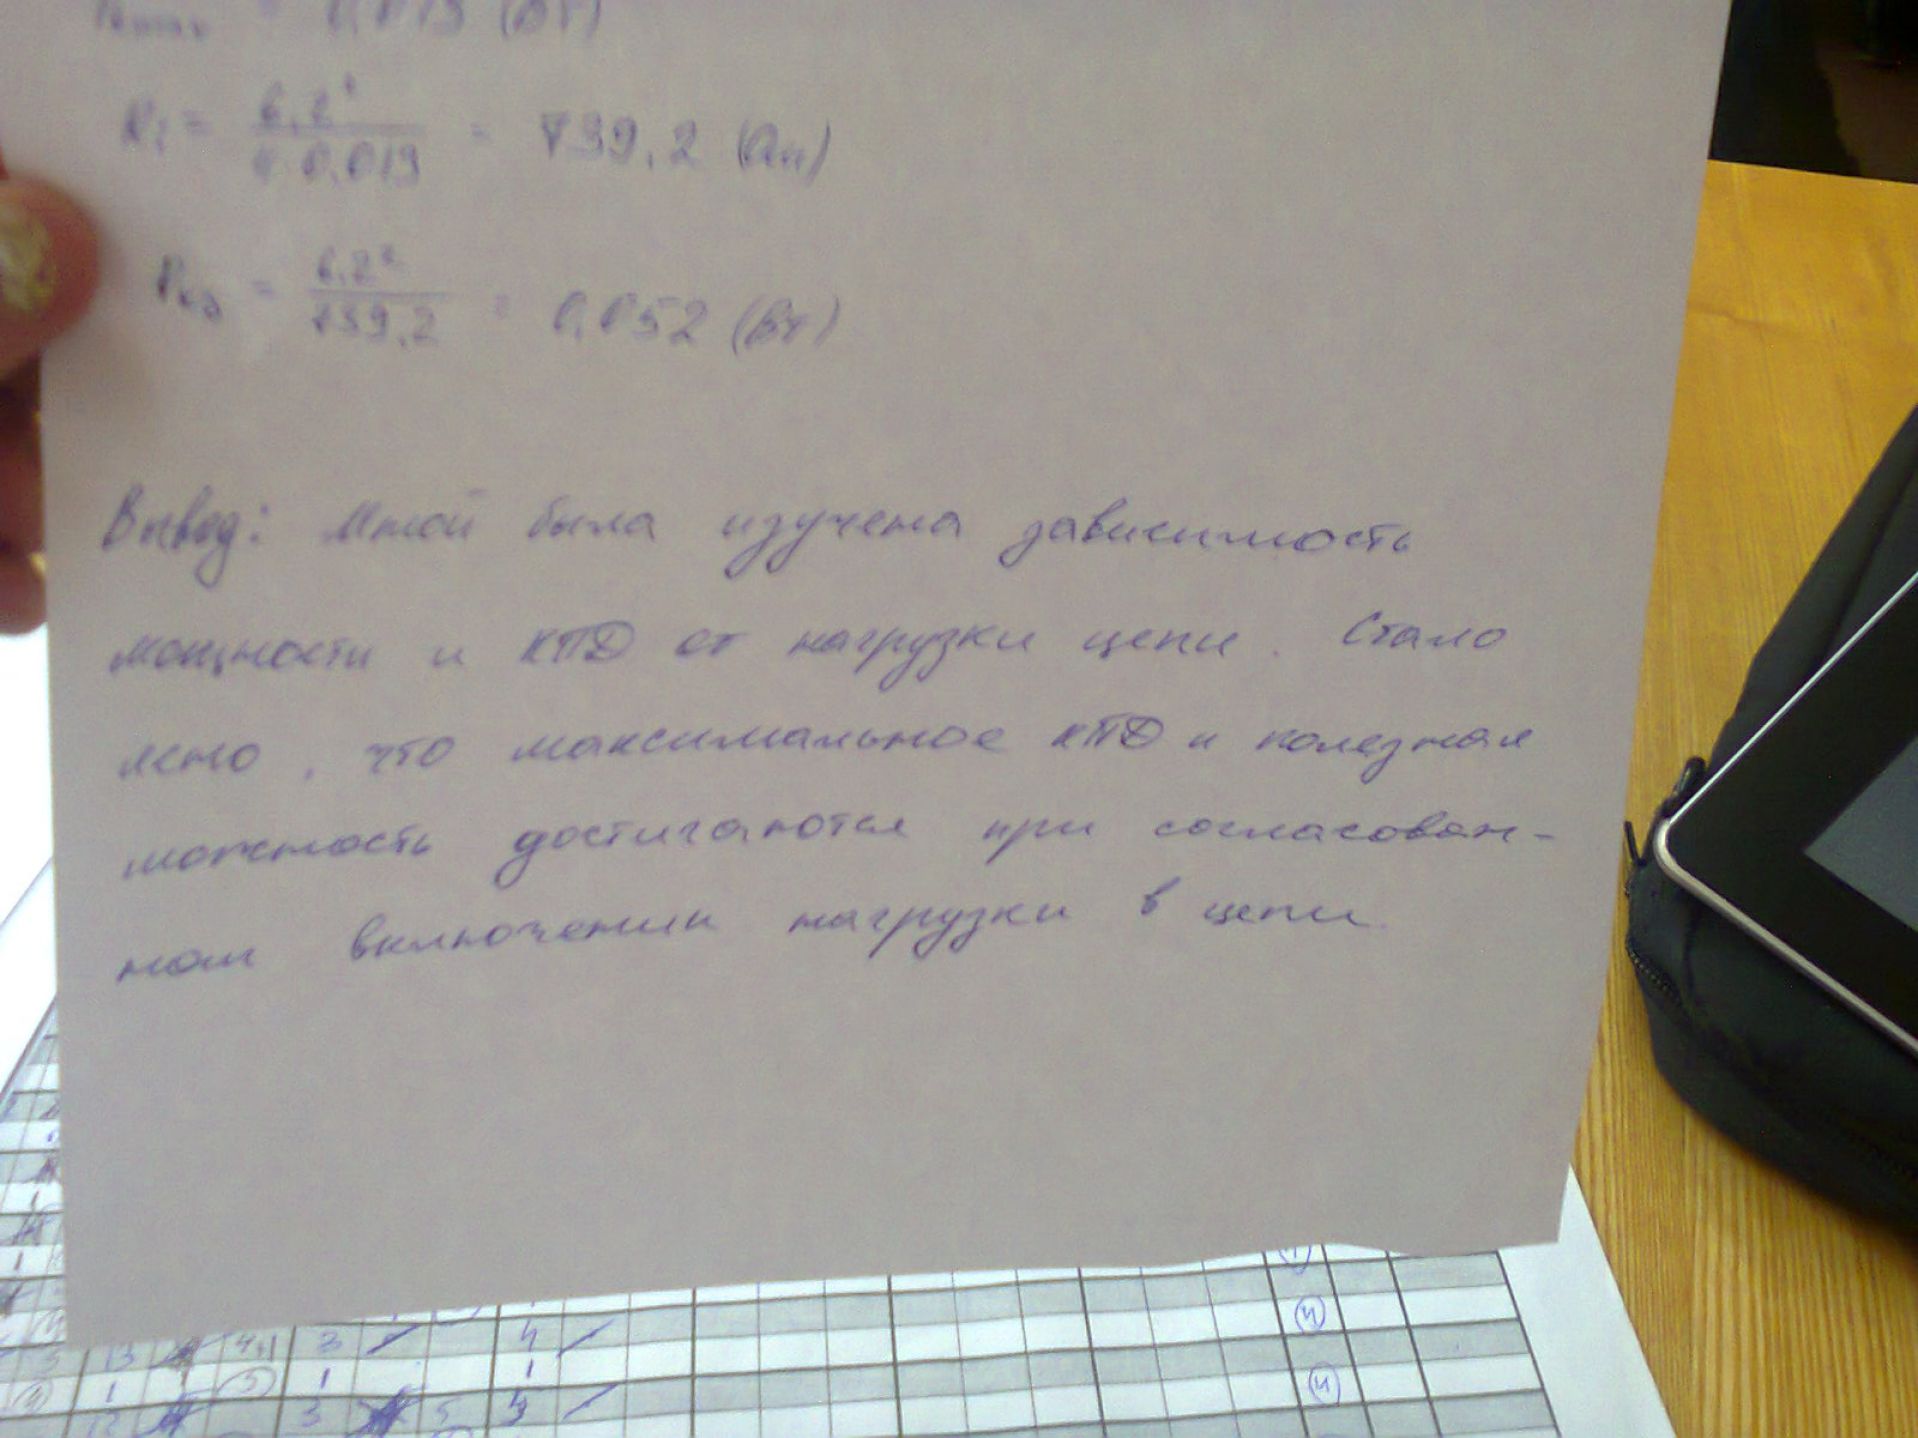 = 0,013 (Вт)
Ri = 6,2² / 4·0,013 = 739,2 (Ом)
Pкз = 6,2² / 739,2 = 0,052 (Вт)
Вывод: Мной была изучена зависимость
мощности и КПД от нагрузки цепи. Стало
ясно, что максимальное КПД и полезная
мощность достигаются при согласован-
ном включении нагрузки в цепи.
3 13 4,1 3 4
1 1 5 1 1
12 3 5 4
4
4